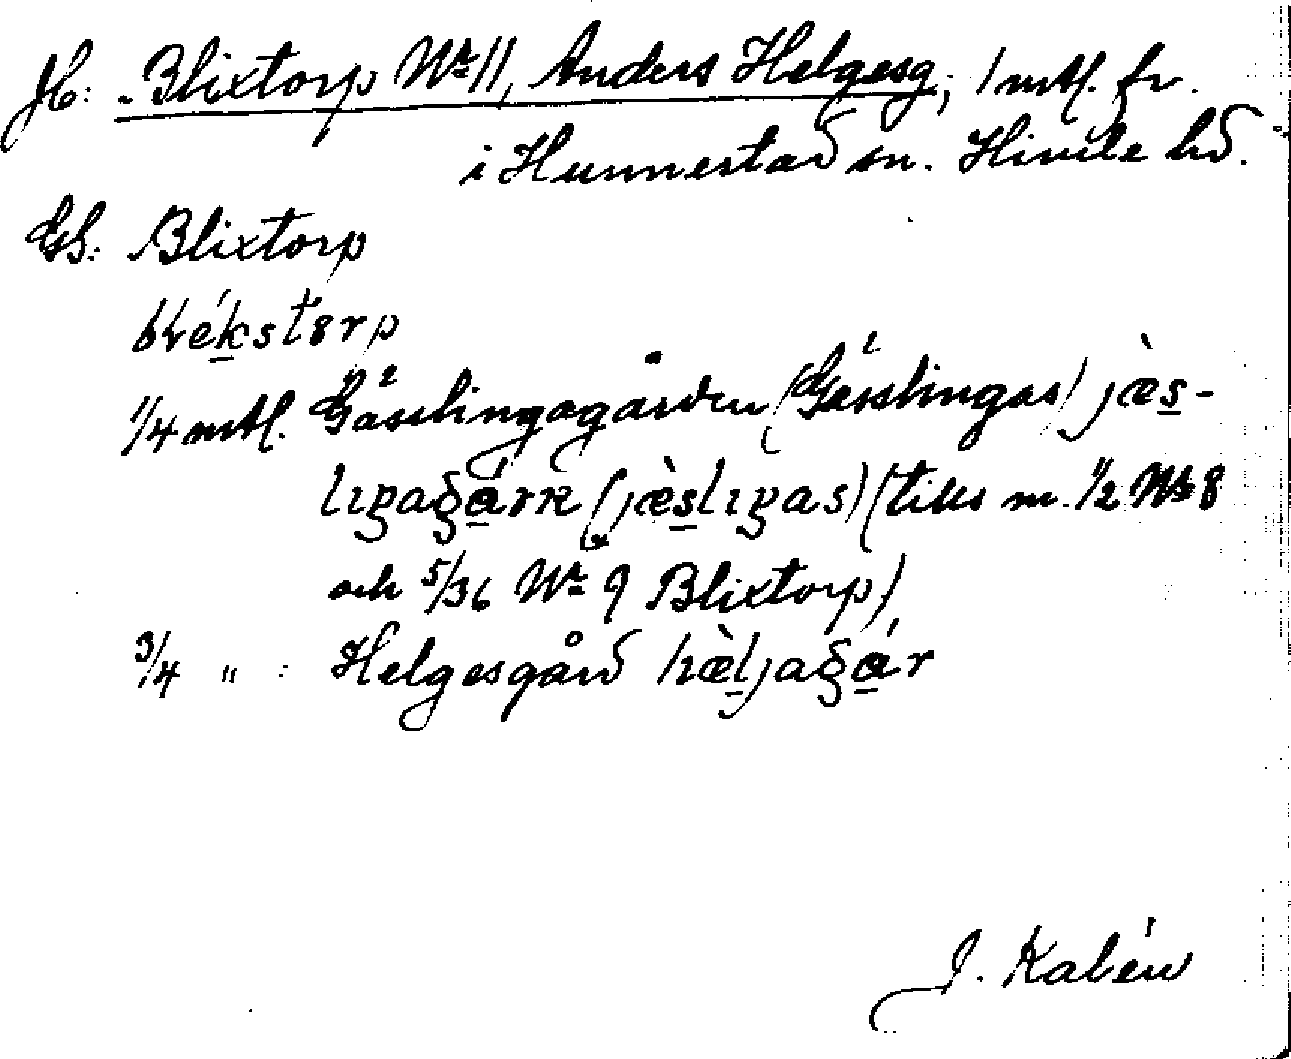 Jb: Blixtorp Nr 11, Anders Helgesg., 1 mtl. fr.
i Hunnestad sn. Himle hd.
GS: Blixtorp
blékstɵrp
1/4 mtl. Gässlingagården (Gässlingas) jæ̀s-
lıŋaɡárn (jæ̀slıŋas) (tills m. 1/2 Nr 8
och 5/36 Nr 9 Blixtorp)
3/4 " : Helgesgård hæ̀ljaɡár
J. Kalén